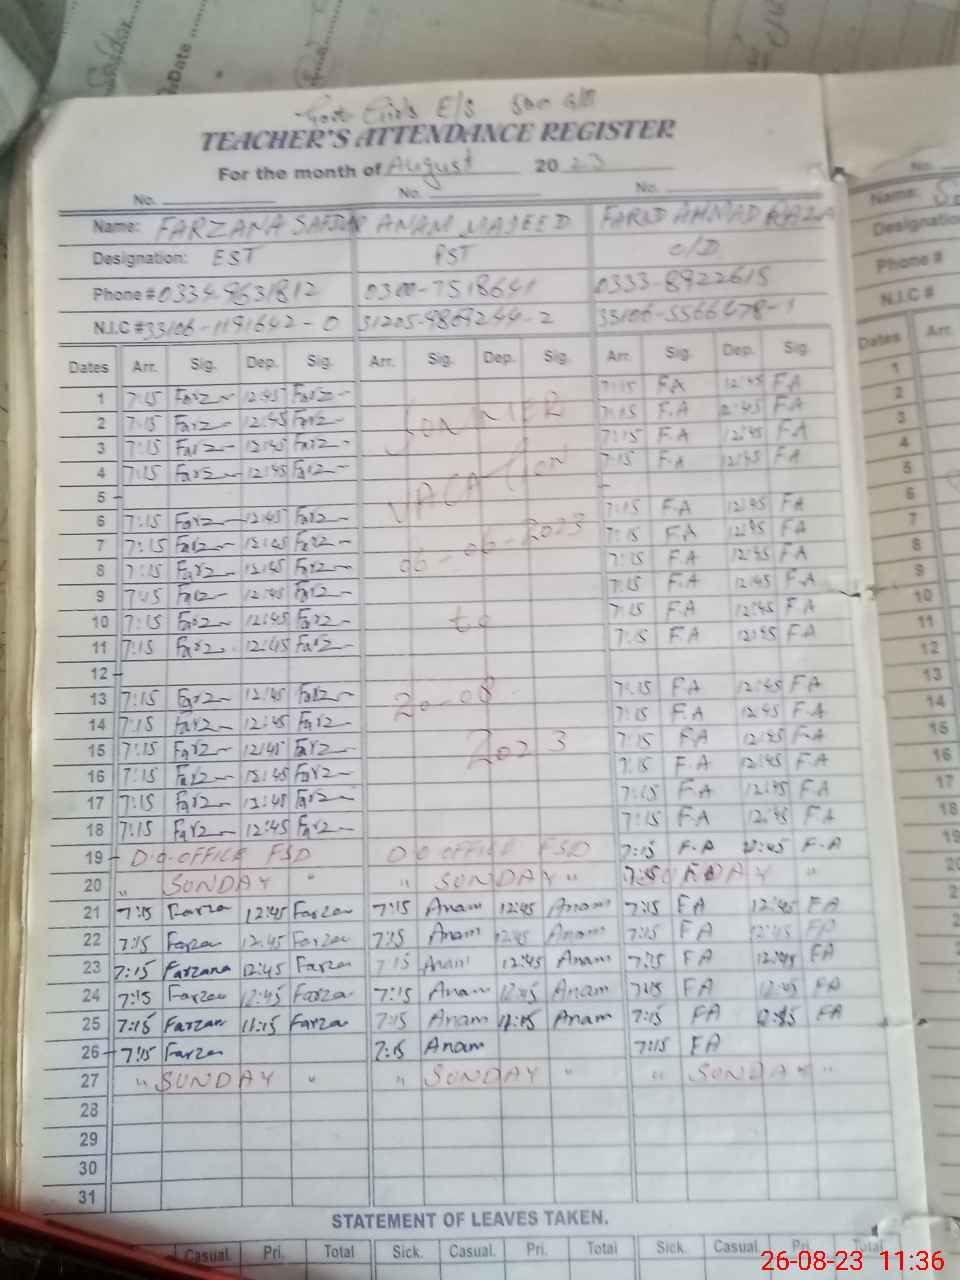 Saldar
Date
Govt Girls E/S 500 G/B
TEACHER'S ATTENDANCE REGISTER
For the month of August 2023
No. No. No.
Name: FARZANA SAFDAR ANAM MAJEED FARID AHMAD RAZA
Designation: EST PST C/D
Phone # 0334-9631812 0300-7518641 0333-8922615
N.I.C # 33106-1191642-0 31205-9869244-2 33106-5566478-1
Dates Arr. Sig. Dep. Sig. Arr. Sig. Dep. Sig. Arr. Sig. Dep. Sig.
1 7:15 Farz 12:45 Farz 7:15 F.A 12:45 F.A
2 7:15 Farz 12:45 Farz SUMMER 7:15 F.A 12:45 F.A
3 7:15 Farz 12:45 Farz 7:15 F.A 12:45 F.A
4 7:15 Farz 12:45 Farz VACATION 7:15 F.A 12:45 F.A
5 - -
6 7:15 Farz 12:45 Farz 7:15 F.A 12:45 FA
7 7:15 Farz 12:45 Farz 06-06-2023 7:15 F.A 12:45 FA
8 7:15 Farz 12:45 Farz 7:15 F.A 12:45 FA
9 7:15 Farz 12:45 Farz 7:15 F.A 12:45 F.A
10 7:15 Farz 12:45 Farz to 7:15 F.A 12:45 F.A
11 7:15 Farz 12:45 Farz 7:15 F.A 12:45 FA
12 -
13 7:15 Farz 12:45 Farz 20-08 7:15 F.A 12:45 FA
14 7:15 Farz 12:45 Farz 7:15 F.A 12:45 F.A
15 7:15 Farz 12:45 Farz 2023 7:15 FA 12:45 F.A
16 7:15 Farz 12:45 Farz 7:15 F.A 12:45 F.A
17 7:15 Farz 12:45 Farz 7:15 F.A 12:45 FA
18 7:15 Farz 12:45 Farz 7:15 F.A 12:45 FA
19 - D.O.OFFICE FSD D O OFFICE FSD 7:15 F.A 12:45 F.A
20 " SUNDAY " " SUNDAY " "
21 7:15 Farzan 12:45 Farzan 7:15 Anam 12:45 Anam 7:15 FA 12:45 FA
22 7:15 Farzan 12:45 Farzan 7:15 Anam 12:45 Anam 7:15 FA 12:45 FA
23 7:15 Farzana 12:45 Farzan 7:15 Anam 12:45 Anam 7:15 FA 12:45 FA
24 7:15 Farzan 12:45 Farzan 7:15 Anam 12:45 Anam 7:15 FA 12:45 FA
25 7:15 Farzan 11:15 Farzan 7:15 Anam 11:15 Anam 7:15 FA FA
26 - 7:15 Farzan 7:15 Anam 7:15 FA
27 " SUNDAY " " SUNDAY " " SUNDAY "
28
29
30
31
STATEMENT OF LEAVES TAKEN.
Casual. Pri. Total Sick. Casual. Pri. Total Sick. Casual Pri. Total
No.
Name:
Designation
Phone #
N.I.C #
Dates Arr.
1
2
3
4
5
6
7
8
9
10
11
12
13
14
15
16
17
18
19
20
26-08-23 11:36